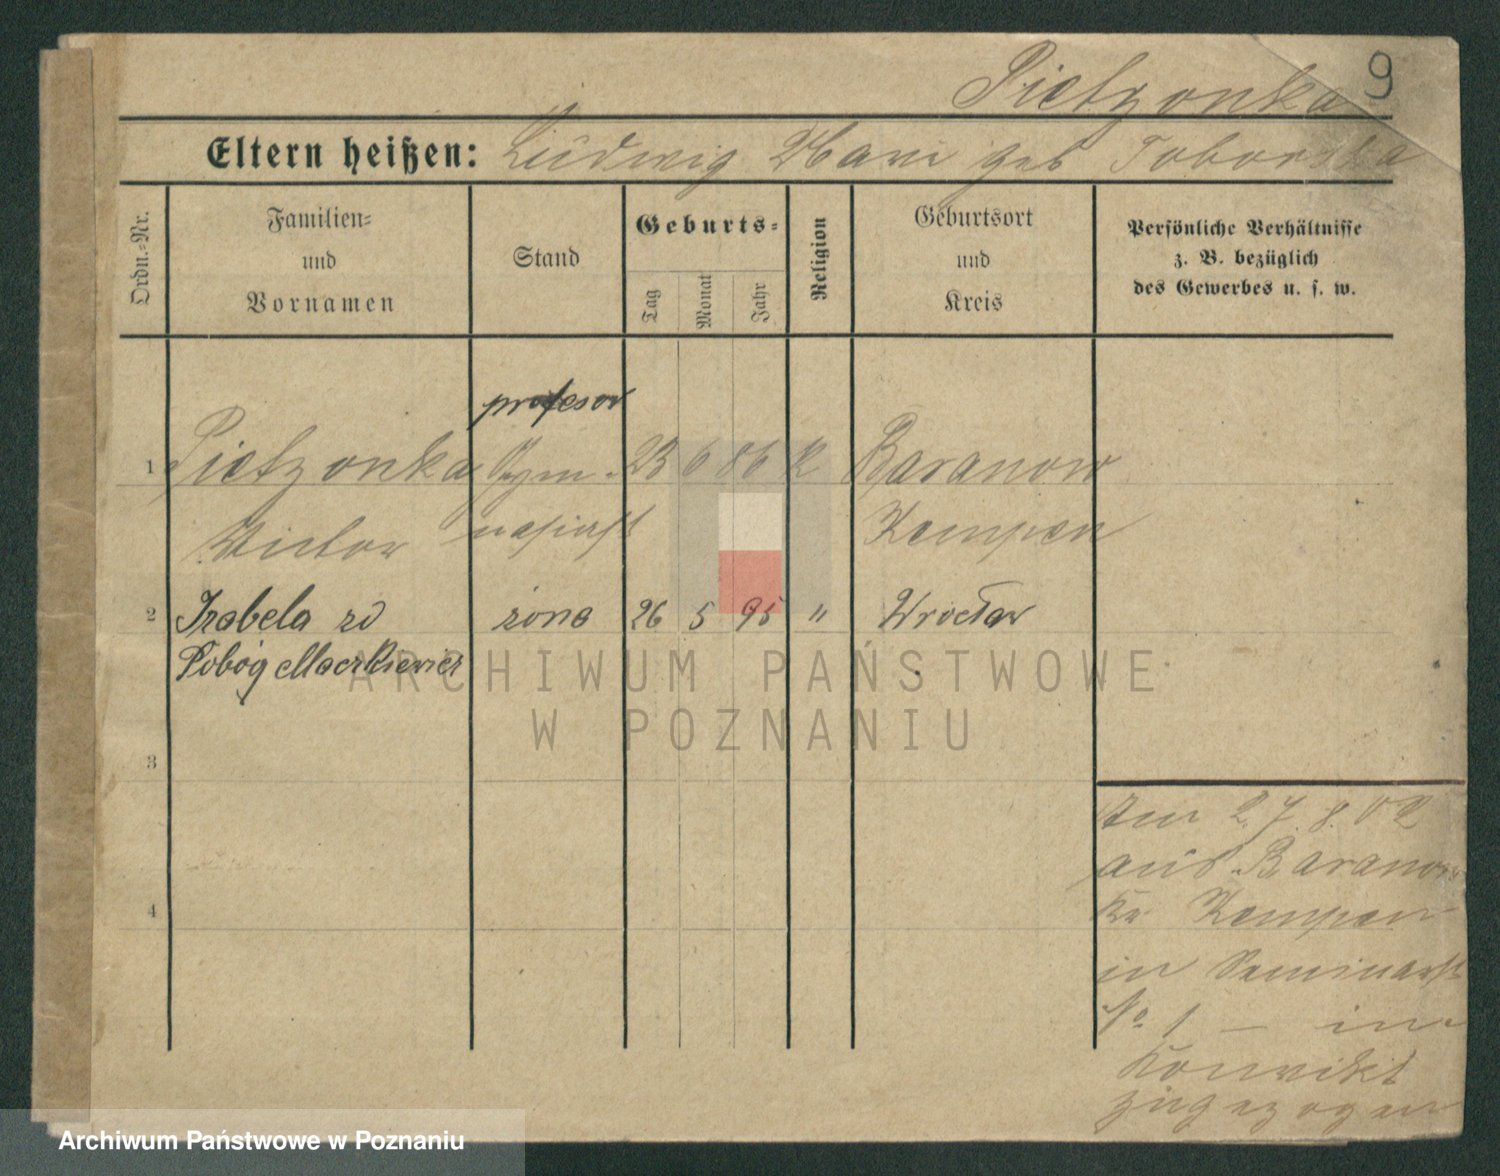 9
Pietzonka
Eltern heißen: Ludwig Mari geb Toborska
Ordn.=Nr.
Familien=
und
Vornamen
Stand
Geburts=
Tag
Monat
Jahr
Religion
Geburtsort
und
Kreis
Persönliche Verhältnisse
z. B. bezüglich
des Gewerbes u. s. w.
profesor
1 Pietzonka Gym- 23 6 86 K Baranow
Victor nasiast Kempen
2 Izabela zd żona 26 5 95 " Wrocław
Pobóg Mackiewicz
3
4
Am 27.8.02
aus Baranow
Kr Kempen
in Seminarst
No 1 — in
Konvikt
zugezogen
ARCHIWUM PAŃSTWOWE
W POZNANIU
Archiwum Państwowe w Poznaniu